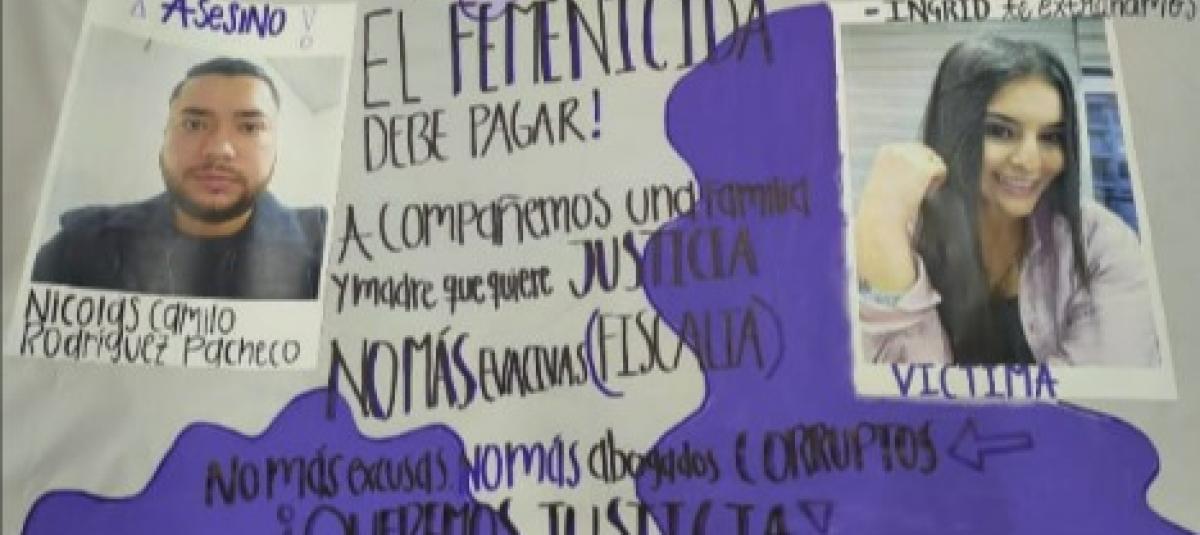 ¡ ASESINO !
NICOLAS CAMILO
RODRIGUEZ PACHECO
EL FEMENICIDA
DEBE PAGAR!
ACOMPAÑEMOS UNA FAMILIA
Y MADRE QUE QUIERE JUSTICIA
NO MÁS EVACIVAS (FISCALIA)
NO MÁS EXCUSAS. NO MÁS ABOGADOS CORRUPTOS
¡QUEREMOS JUSTICIA!
- INGRID te extrañamos
VICTIMA